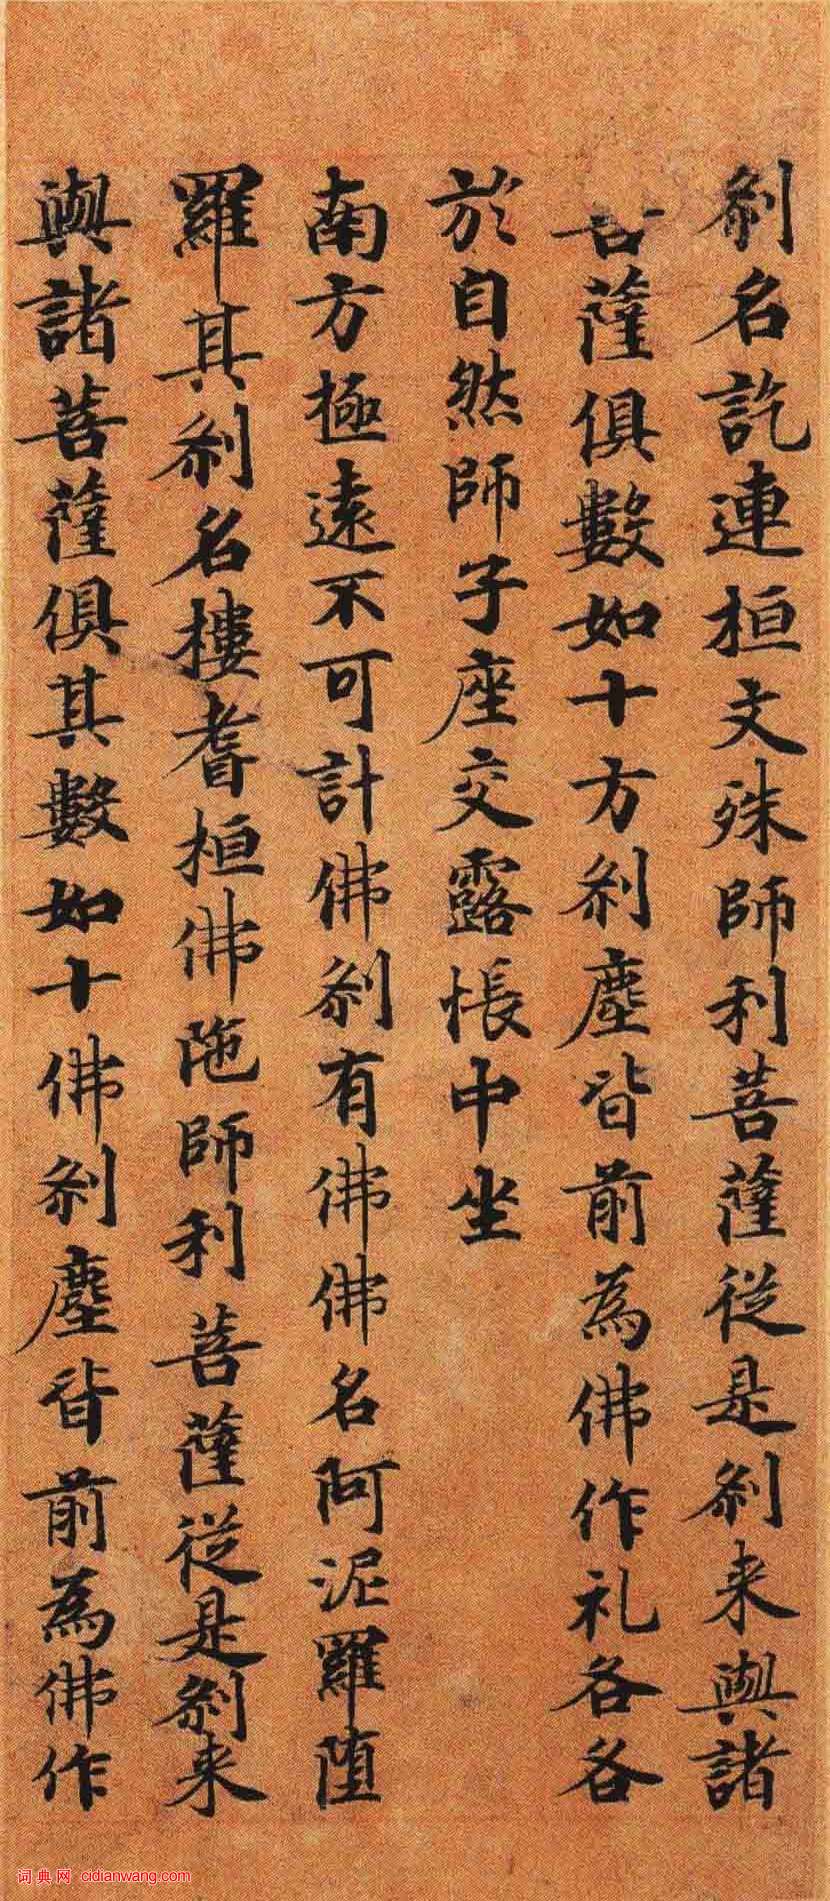 刹名訖連桓文殊師利菩薩從是刹来與諸
菩薩俱數如十方刹塵皆前為佛作礼各各
於自然師子座交露帳中坐
南方極遠不可計佛刹有佛佛名阿泥羅墮
羅其刹名樓耆桓佛陁師利菩薩從是刹来
與諸菩薩俱其數如十佛刹塵皆前為佛作
词典网·cidianwang.com